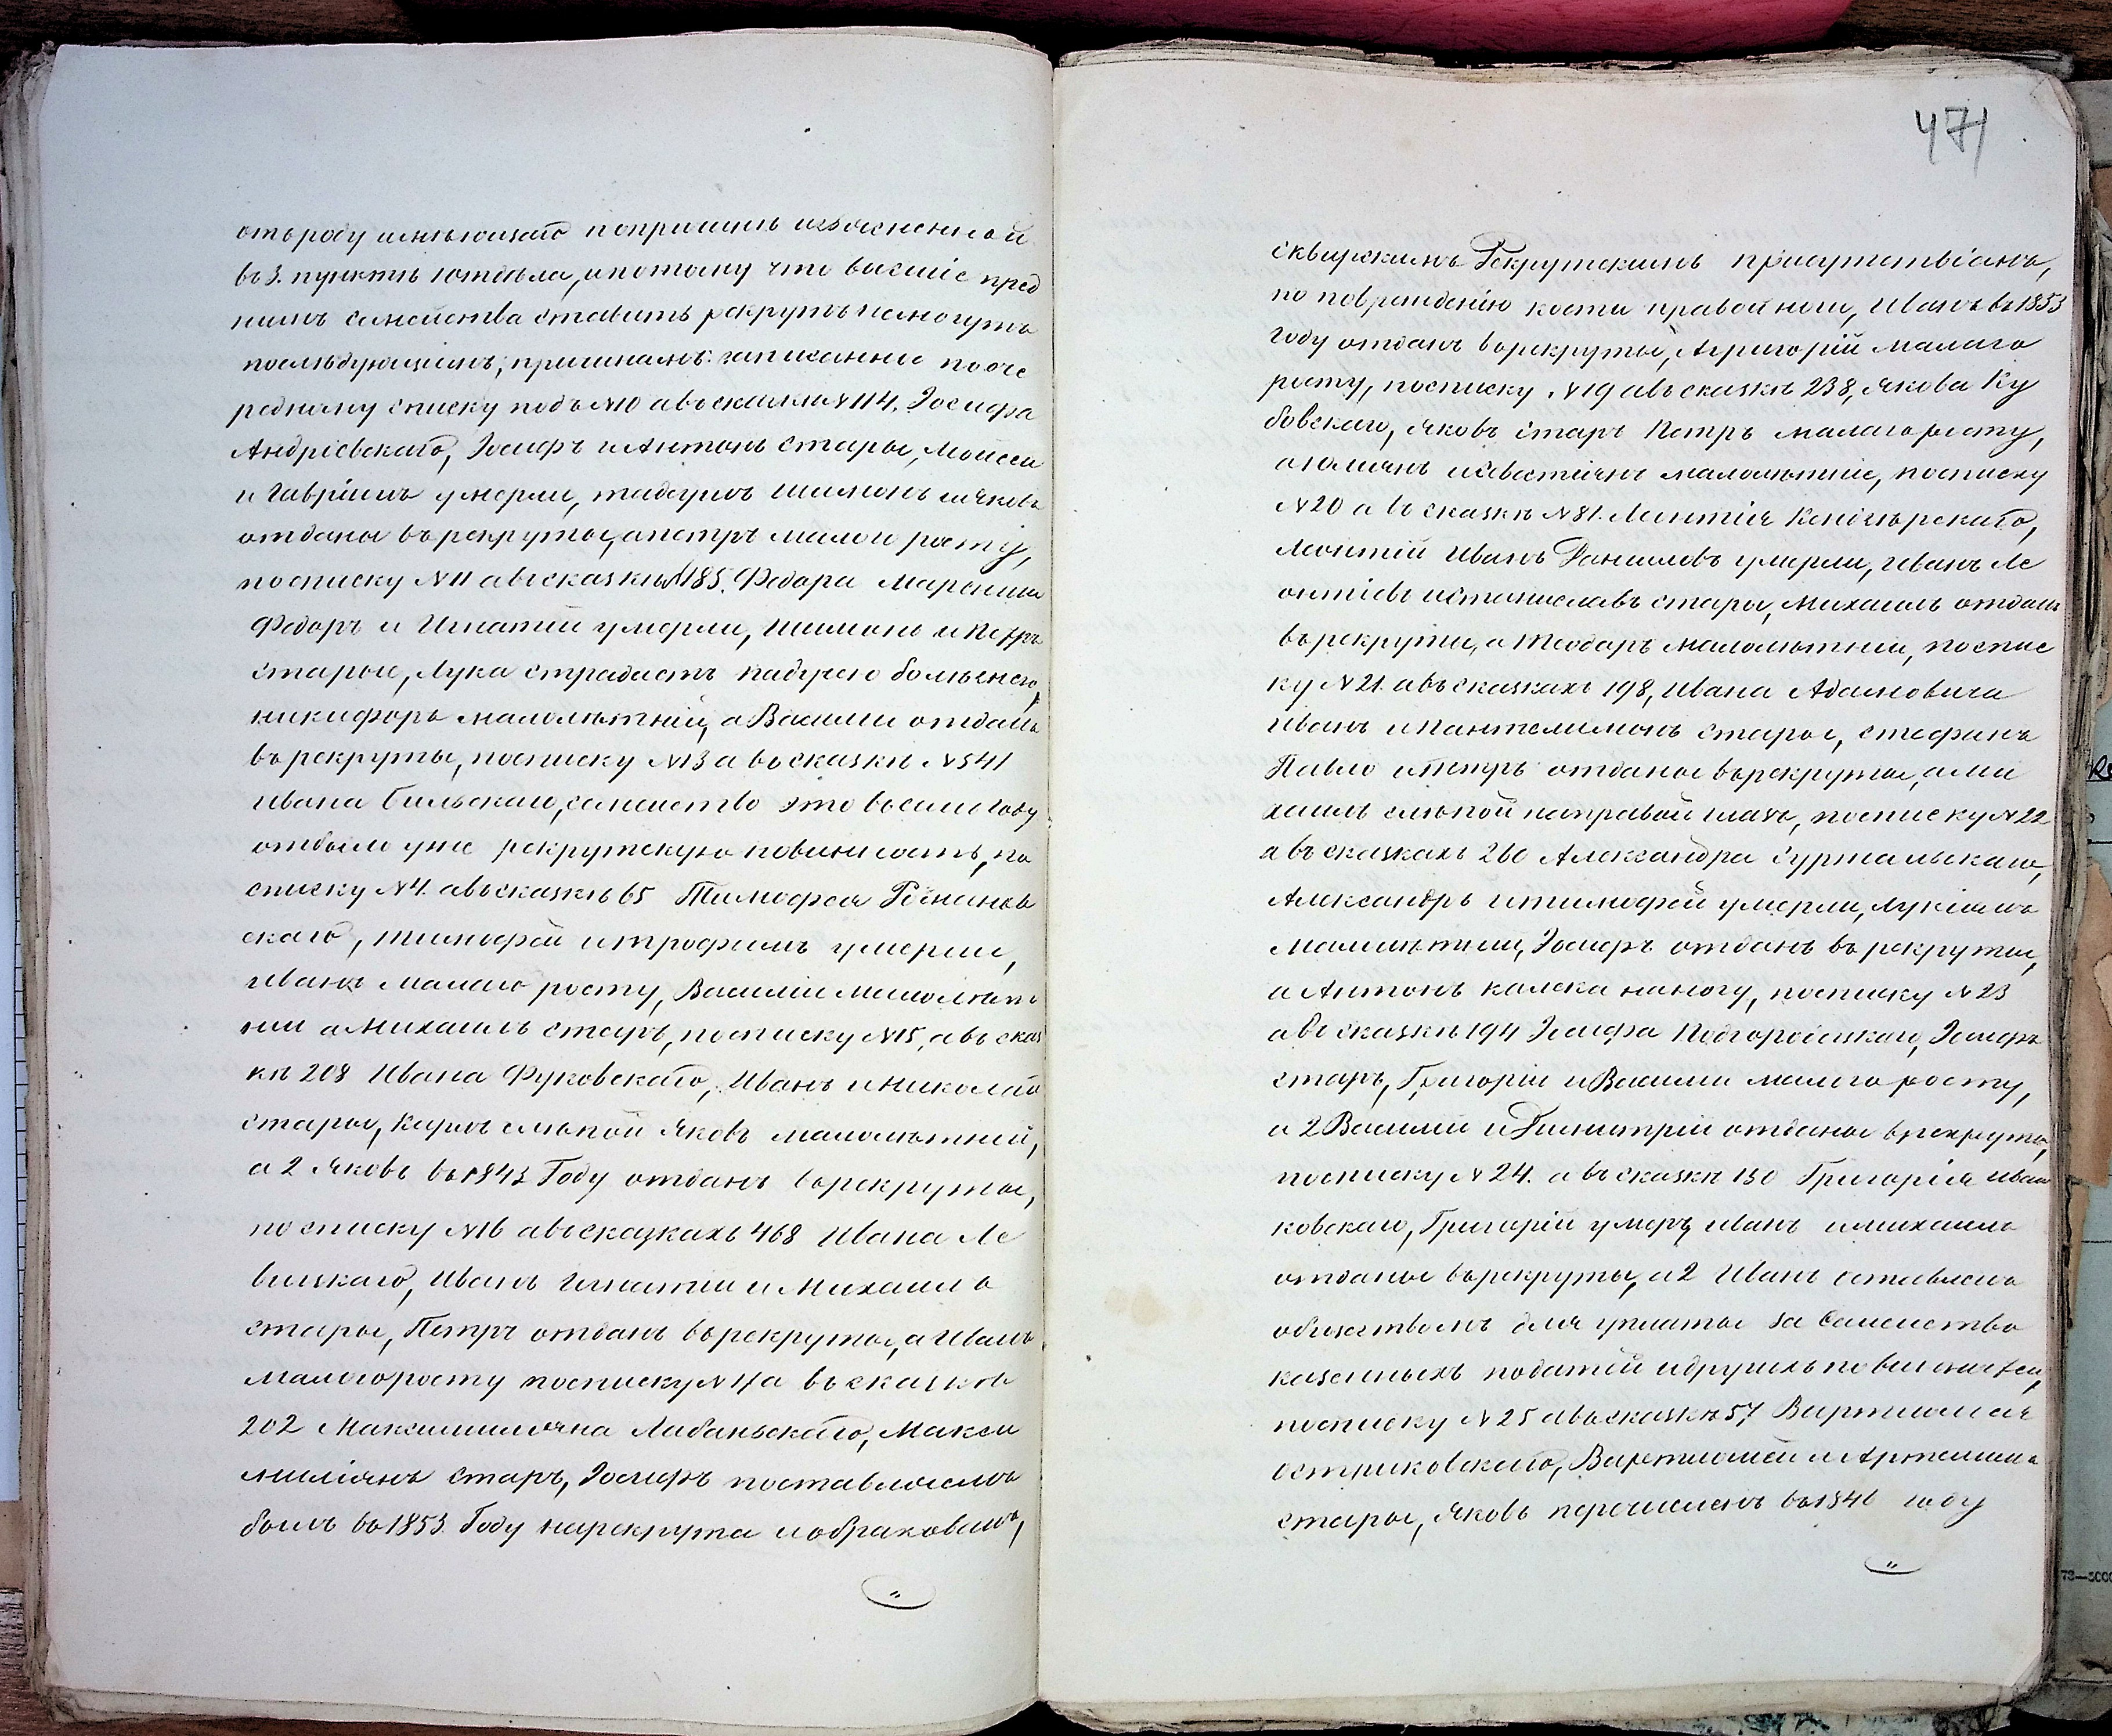 отъ роду имѣющаго по причинѣ изъясненной
въ 3. пунктѣ 1 отдѣла, и потому что высшіе пред
нимъ семейства ставить рекрутъ не могутъ
послѣдующимъ, причинамъ: записанные по оче
редному списку подъ №10 а въ сказкѣ №114. Іосифа
Андріевскаго, Іосифъ и Антонъ стары, Моисей
и Гавріилъ умерли, Тадеушъ Шимонъ и Яковъ
отданы въ рекруты, а Петръ малого росту,
по списку №11 а въ сказкѣ №185. Федора
Федоръ и Игнатій умерли, Шимонъ и Петръ
старые, Лука страдаетъ падучею болѣзнею,
Никифоръ малолѣтній, а Василій отданъ
въ рекруты, по списку №13 а въ сказкѣ №541
Ивана Бильскаго, семейство это въ семъ году
отбыло уже рекрутскую повинность, по
списку №4. а въ сказкѣ 65 Тимофея
скаго, Тимофей и Трофимъ умерли,
Иванъ малаго росту, Василій малолѣт
ній а Михаилъ старъ, по списку №15, а въ сказ
кѣ 208 Ивана Фуковскаго, Иванъ и Николай
стары, Кирилъ слѣпой Яковъ малолѣтній,
а 2 Яковъ въ 1843 Году отданъ въ рекруты,
по списку №16 а въ сказкахъ 468 Ивана Ле
вицкаго, Иванъ Игнатій и Михаилъ
стары, Петръ отданъ въ рекруты, а Иванъ
малого росту по списку №17 а въ сказкѣ
202 Максимиліяна Лабаньскаго, Макси
миліянъ старъ, Іосифъ поставляемъ
былъ въ 1853 Году на рекрута и обракованъ,
471
Сквирскимъ Рекрутскимъ присутствіемъ,
по поврежденію кости правой ноги, Иванъ въ 1853
году отданъ въ рекруты, а Григорій малаго
росту, по списку №19 а въ сказкѣ 238, Якова Ку
бовскаго, Яковъ старъ Петръ малаго росту,
а и Севастіянъ малолѣтніе, по списку
№20 а въ сказкѣ №81. Леонтія
Леонтій Иванъ Даниловъ умерли, Иванъ Ле
онтіевъ и Станиславъ стары, Михаилъ отданъ
въ рекруты, а Теодоръ малолѣтній, по спис
ку №21. а въ сказкахъ 198, Ивана Адамовича
Иванъ и Пантелимонъ стары, Стефанъ
Павло и Петръ отданы въ рекруты, а Ми
хаилъ слѣпой на правой глазъ, по списку №22
а въ сказкахъ 260 Александра
Александръ и Тимофей умерли, Лукіянъ
Малолѣтній, Іосифъ отданъ въ рекруты,
а Антонъ калека на ногу, по списку №23
а въ сказкѣ 194 Іосифа Подгородецкаго, Іосифъ
старъ, Григорій и Василій малого росту,
а 2 Василій и Димитрій отданы в рекруты,
по списку №24. а въ сказкѣ 130 Григорія Иван
ковскаго, Григорій умеръ, Иванъ и Михаилъ
отданы въ рекруты, а 2 Иванъ оставленъ
обществомъ для уплаты за семейство
казенныхъ податей и другихъ повинностей,
по списку №25 а въ сказкѣ 57 Вартломея
Остриковскаго, Вартломей и Артемій
стары, Яковъ перечисленъ въ 1846 году